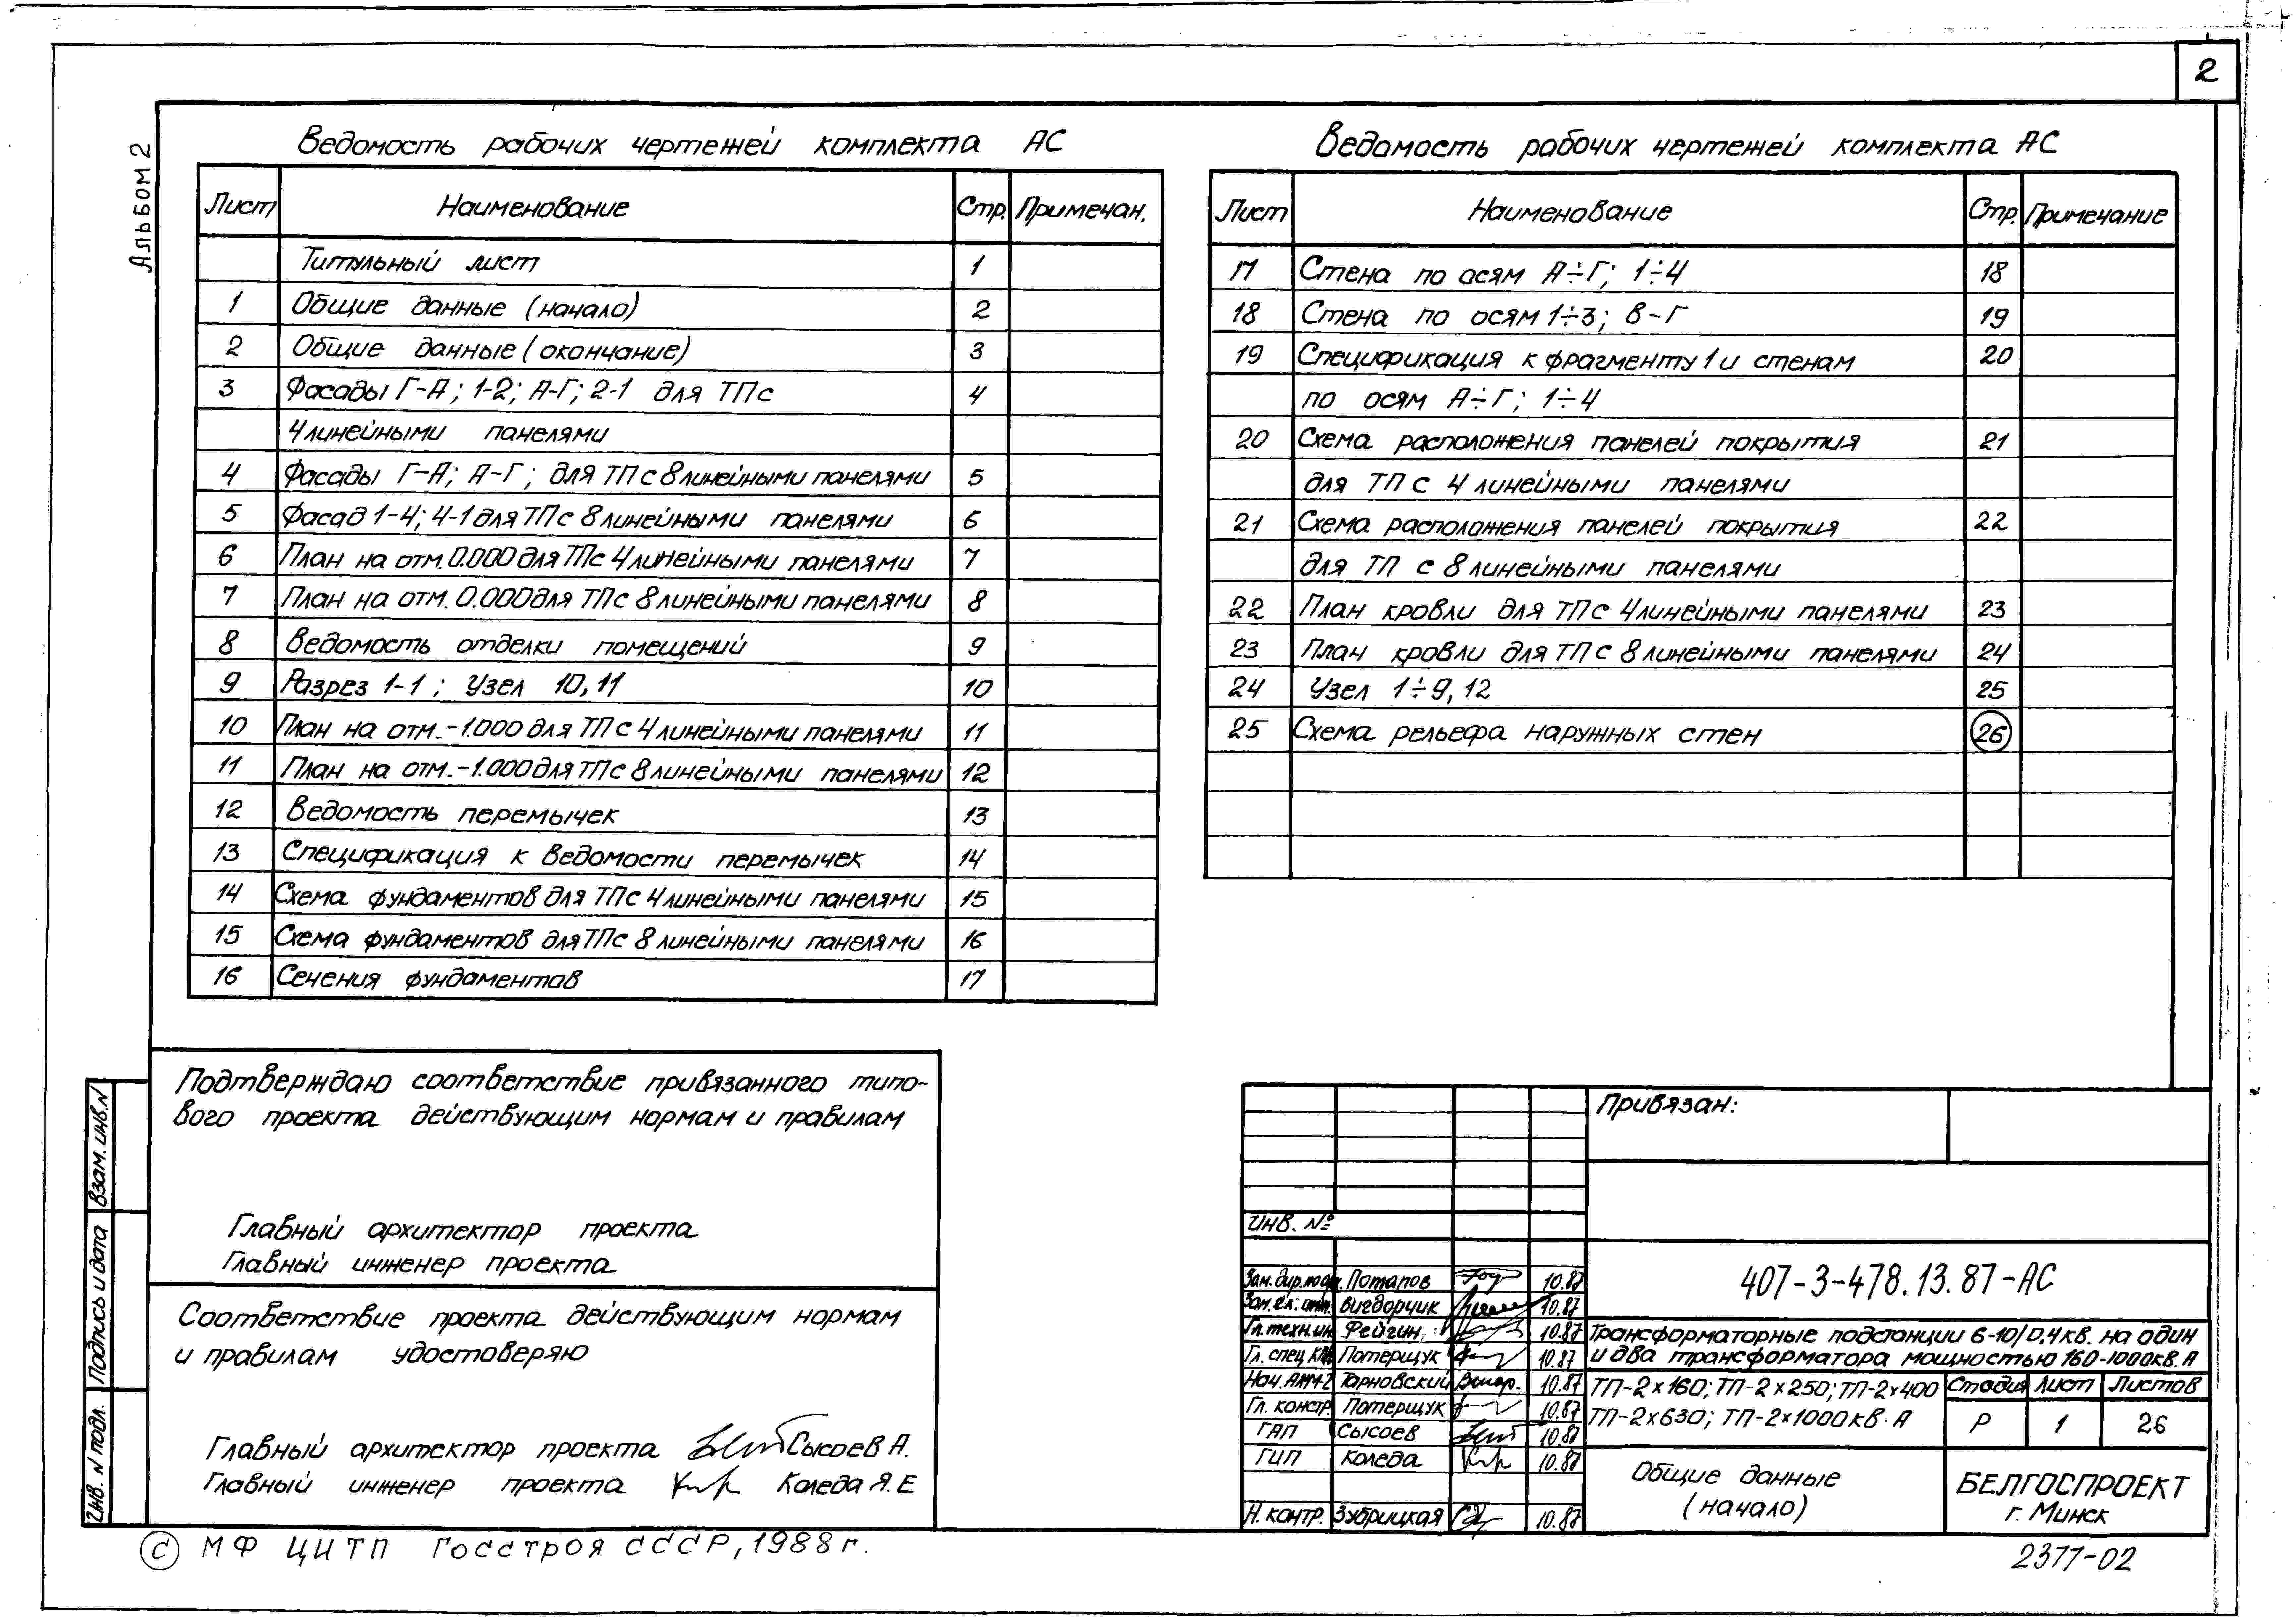 2
Альбом 2
Ведомость рабочих чертежей комплекта АС
Лист Наименование Стр. Примечан.
Титульный лист 1
1 Общие данные (начало) 2
2 Общие данные (окончание) 3
3 Фасады Г-А; 1-2; А-Г; 2-1 для ТП с 4
4 линейными панелями
4 Фасады Г-А; А-Г; для ТП с 8 линейными панелями 5
5 Фасад 1-4; 4-1 для ТП с 8 линейными панелями 6
6 План на отм. 0.000 для ТП с 4 линейными панелями 7
7 План на отм. 0.000 для ТП с 8 линейными панелями 8
8 Ведомость отделки помещений 9
9 Разрез 1-1; Узел 10, 11 10
10 План на отм. -1.000 для ТП с 4 линейными панелями 11
11 План на отм. -1.000 для ТП с 8 линейными панелями 12
12 Ведомость перемычек 13
13 Спецификация к ведомости перемычек 14
14 Схема фундаментов для ТП с 4 линейными панелями 15
15 Схема фундаментов для ТП с 8 линейными панелями 16
16 Сечения фундаментов 17
Ведомость рабочих чертежей комплекта АС
Лист Наименование Стр. Примечание
17 Стена по осям А÷Г; 1÷4 18
18 Стена по осям 1÷3; В-Г 19
19 Спецификация к фрагменту 1 и стенам 20
по осям А÷Г; 1÷4
20 Схема расположения панелей покрытия 21
для ТП с 4 линейными панелями
21 Схема расположения панелей покрытия 22
для ТП с 8 линейными панелями
22 План кровли для ТП с 4 линейными панелями 23
23 План кровли для ТП с 8 линейными панелями 24
24 Узел 1÷9, 12 25
25 Схема рельефа наружных стен 26
Подтверждаю соответствие привязанного типо-
вого проекта действующим нормам и правилам
Главный архитектор проекта
Главный инженер проекта
Соответствие проекта действующим нормам
и правилам удостоверяю
Главный архитектор проекта Сысоев А.
Главный инженер проекта Коледа Я.Е
Взам. инв. N
Подпись и дата
Инв. N подл.
Привязан:
Инв. №
Зам. дир. по Потапов 10.87
Зам. гл. инж. Вигдорчик 10.87
Гл. техн. ин. Фейгин 10.87
Гл. спец. Потерщук 10.87
Нач. АММ-2 Тарновский 10.87
Гл. констр. Потерщук 10.87
ГАП Сысоев 10.87
ГИП Коледа 10.87
Н. контр. Зубрицкая 10.87
407-3-478.13.87-АС
Трансформаторные подстанции 6-10/0,4кв. на один
и два трансформатора мощностью 160-1000кв.А
ТП-2х160; ТП-2х250; ТП-2х400
ТП-2х630; ТП-2х1000кв.А
Стадия Лист Листов
Р 1 26
Общие данные
(начало)
БЕЛГОСПРОЕКТ
г. Минск
© МФ ЦИТП Госстроя СССР, 1988 г.
2377-02